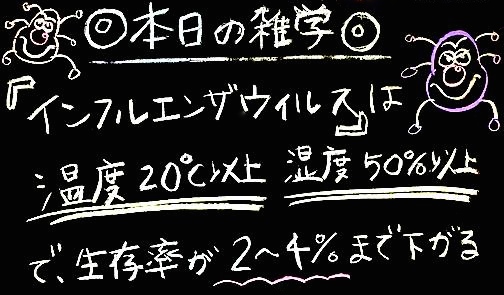 ◎本日の雑学◎
『インフルエンザウィルス』は
温度20℃以上 湿度50%以上
で、生存率が2～4%まで下がる